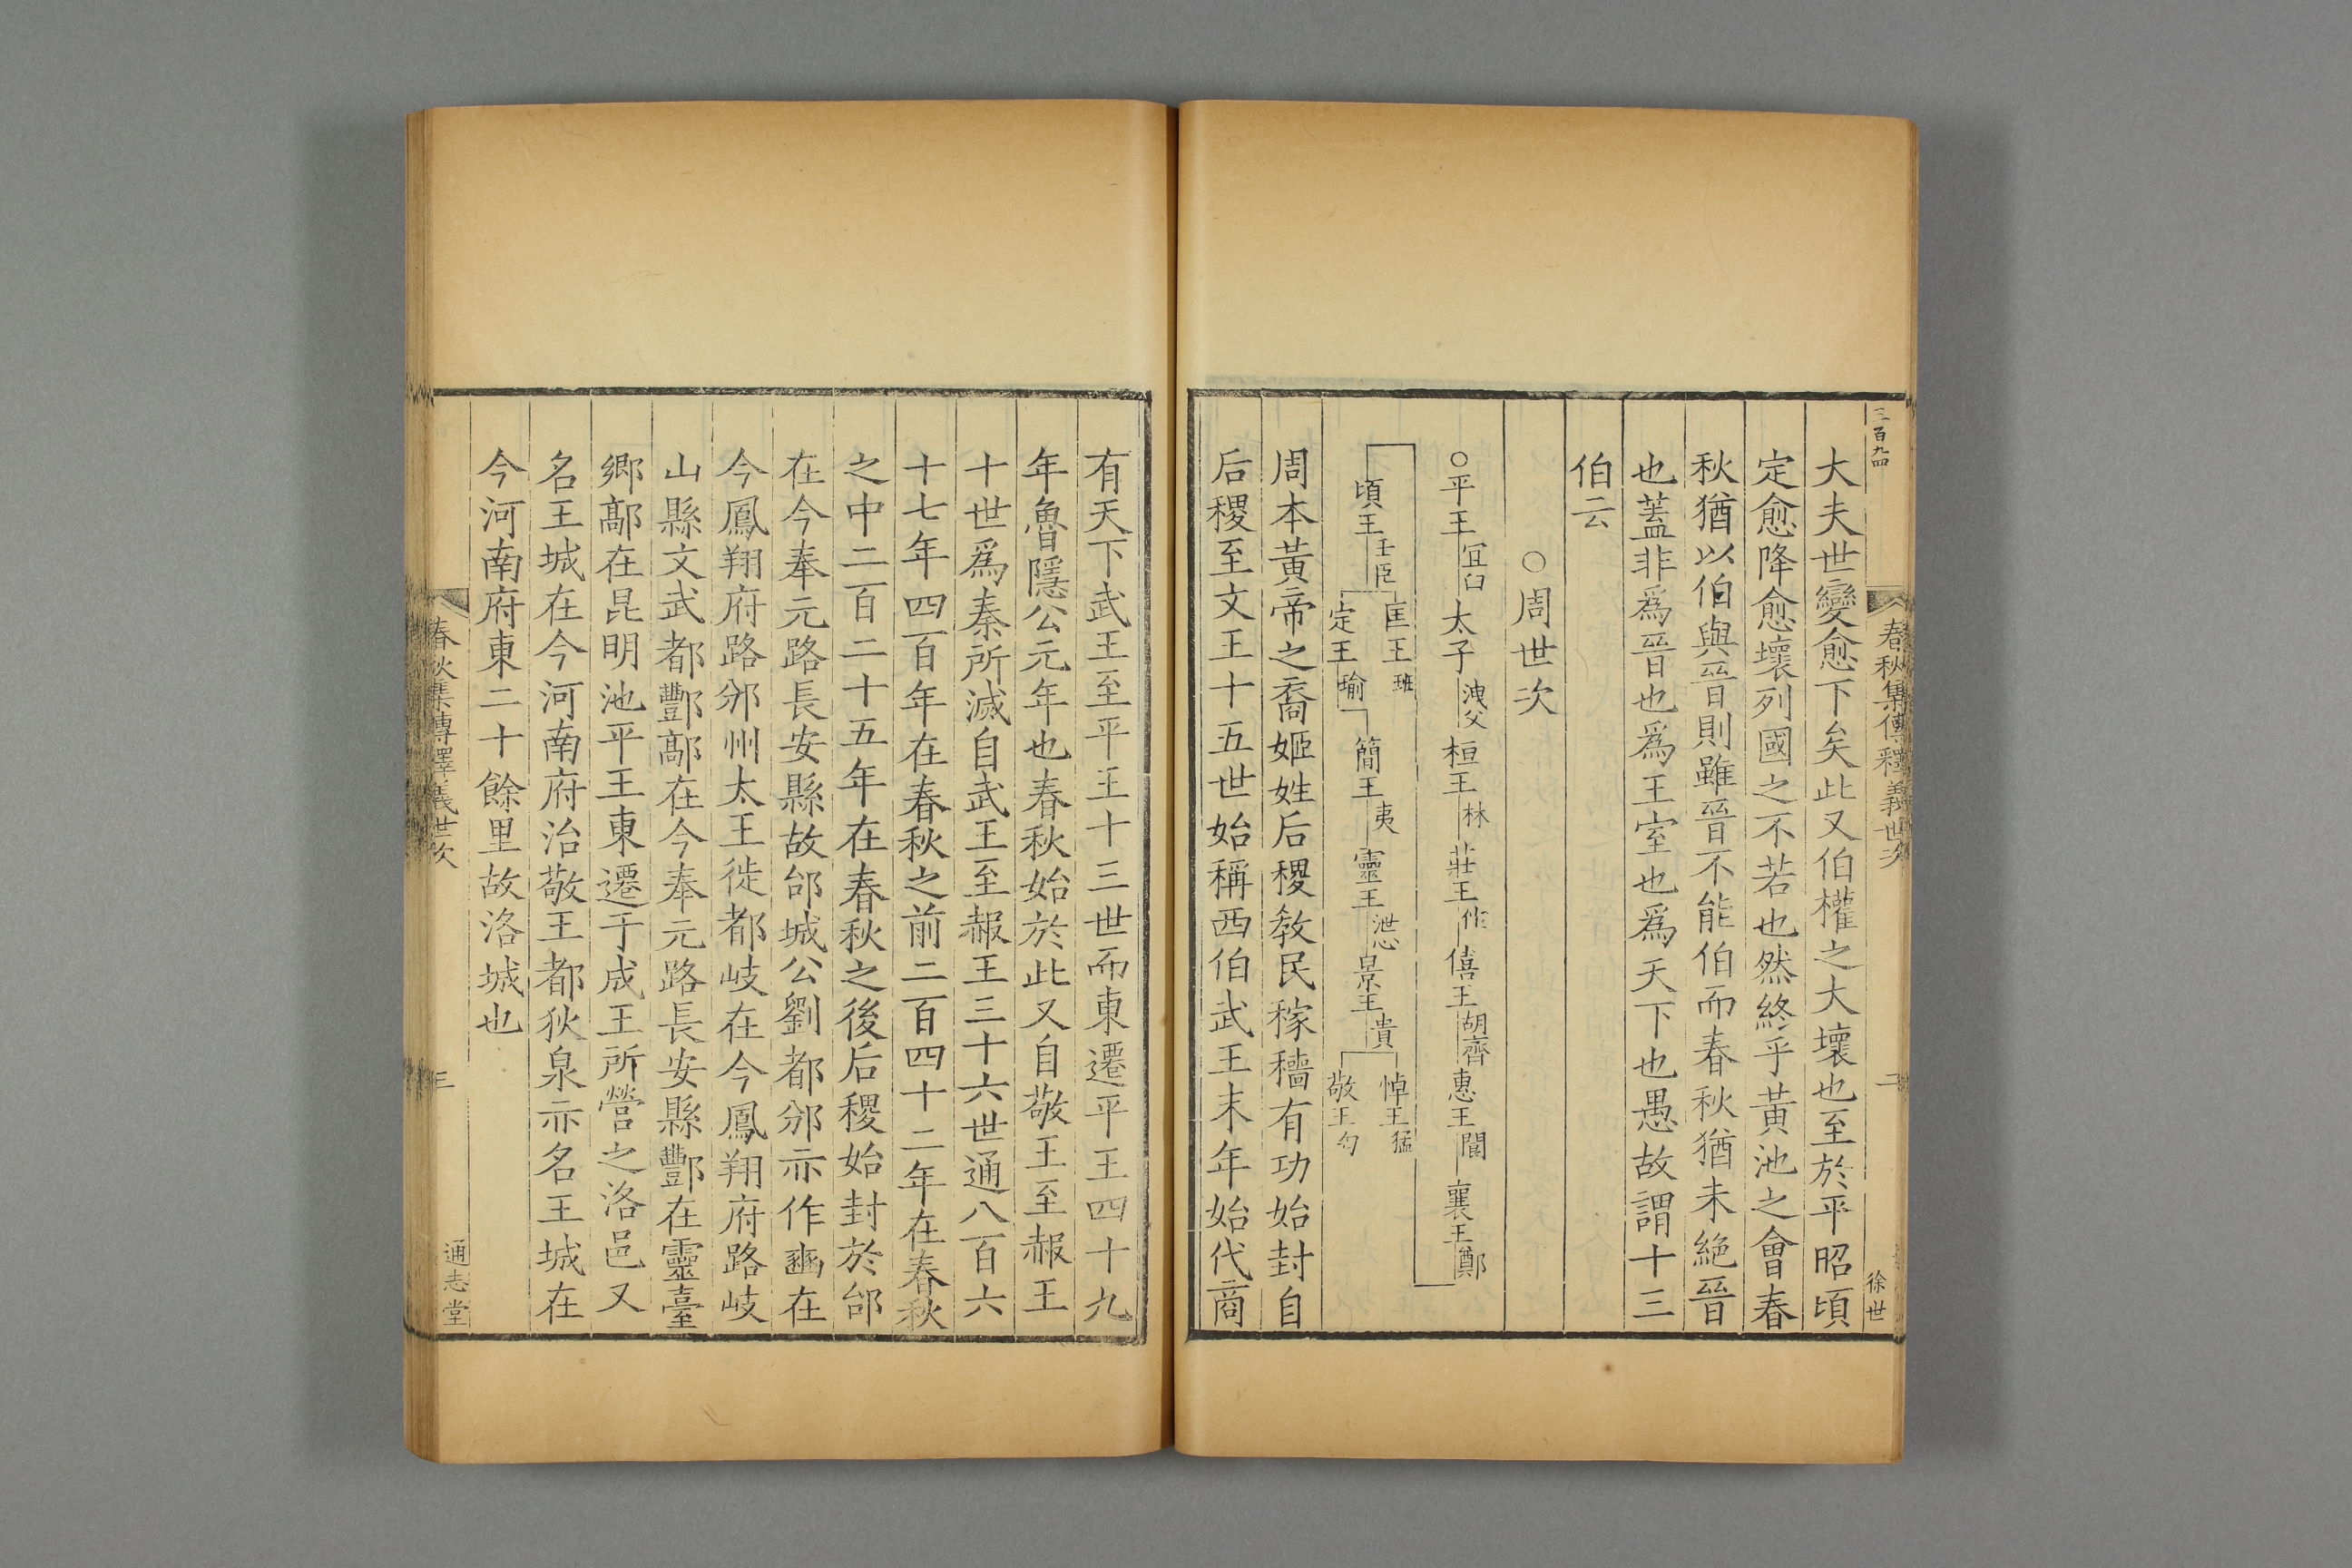 三百九四
春秋集傳釋義世次
二
徐世
大夫世變愈下矣此又伯權之大壞也至於平昭頃
定愈降愈壞列國之不若也然終乎黃池之會春
秋猶以伯與晉則雖晉不能伯而春秋猶未絕晉
也蓋非爲晉也爲王室也爲天下也愚故謂十三
伯云
○周世次
○平王宜臼太子洩父桓王林莊王佗僖王胡齊惠王閬襄王鄭
頃王壬臣
匡王班
定王瑜
簡王夷靈王泄心景王貴
悼王猛
敬王匄
周本黃帝之裔姬姓后稷敎民稼穡有功始封自
后稷至文王十五世始稱西伯武王末年始代商
有天下武王至平王十三世而東遷平王四十九
年魯隱公元年也春秋始於此又自敬王至赧王
十世爲秦所滅自武王至赧王三十六世通八百六
十七年四百年在春秋之前二百四十二年在春秋
之中二百二十五年在春秋之後后稷始封於邰
在今奉元路長安縣故邰城公劉都邠亦作豳在
今鳳翔府路邠州太王徙都岐在今鳳翔府路岐
山縣文武都酆鄗在今奉元路長安縣酆在靈臺
鄉鄗在昆明池平王東遷于成王所營之洛邑又
名王城在今河南府治敬王都狄泉亦名王城在
今河南府東二十餘里故洛城也
春秋集傳釋義世次
三
通志堂